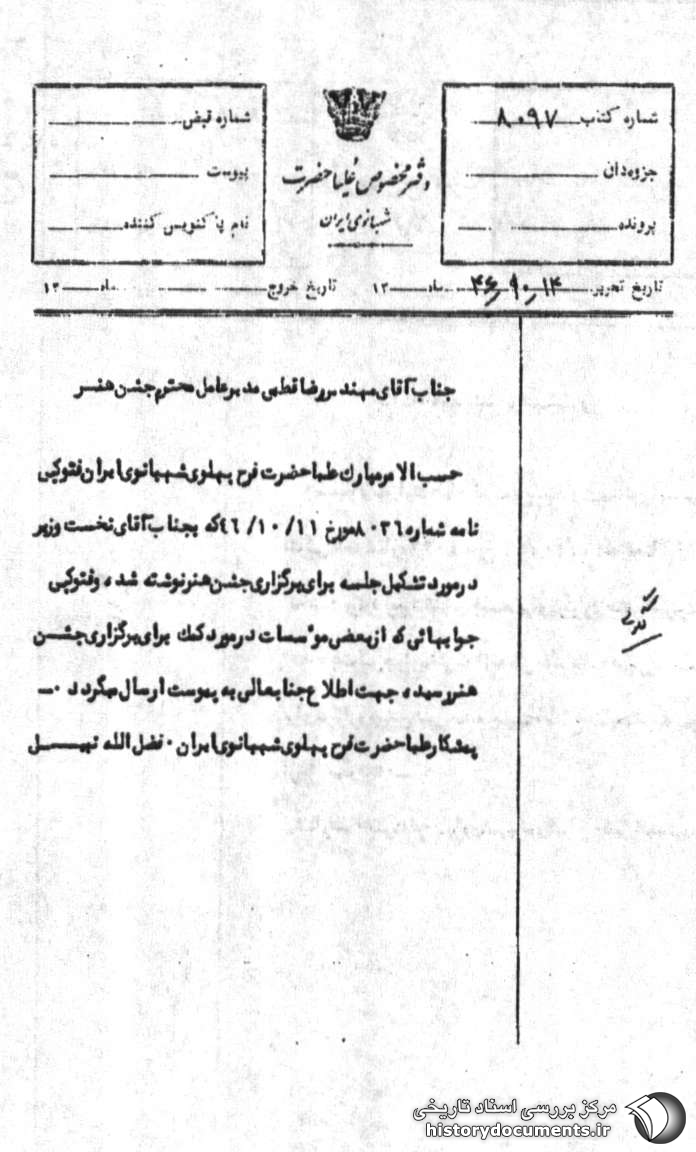 شماره کتاب ۸۰۹۷
جزوه‌دان
پرونده
دفتر مخصوص علیاحضرت
شهبانوی ایران
شماره قبض
پیوست
نام پاکنویس کننده
تاریخ تحریر ۱۴ ماه ۱۳
تاریخ خروج ماه ۱۳
جناب آقای مهندس رضا قطبی مدیرعامل محترم جشن هنر
حسب الامر مبارک علیاحضرت فرح پهلوی شهبانوی ایران فتوکپی
نامه شماره ۸۰۳۶ مورخ ۱۱/ ۱۰/ ۴۶ که بجناب آقای نخست وزیر
در مورد تشکیل جلسه برای برگزاری جشن هنر نوشته شده و فتوکپی
جوابهائی که از بعضی موٴسسات در مورد کمک برای برگزاری جشن
هنر رسیده جهت اطلاع جنابعالی به پیوست ارسال میگردد ۰ـ
پیشکار علیاحضرت فرح پهلوی شهبانوی ایران ۰ فضل الله نبیل
مرکز بررسی اسناد تاریخی
historydocuments.ir